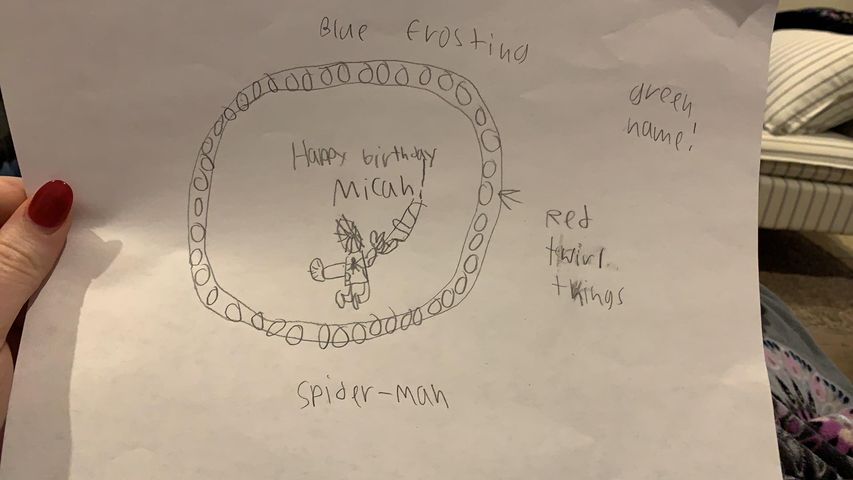 Blue frosting
green
name!
Happy birthday
Micah!
Red
twirl
things
spider-man